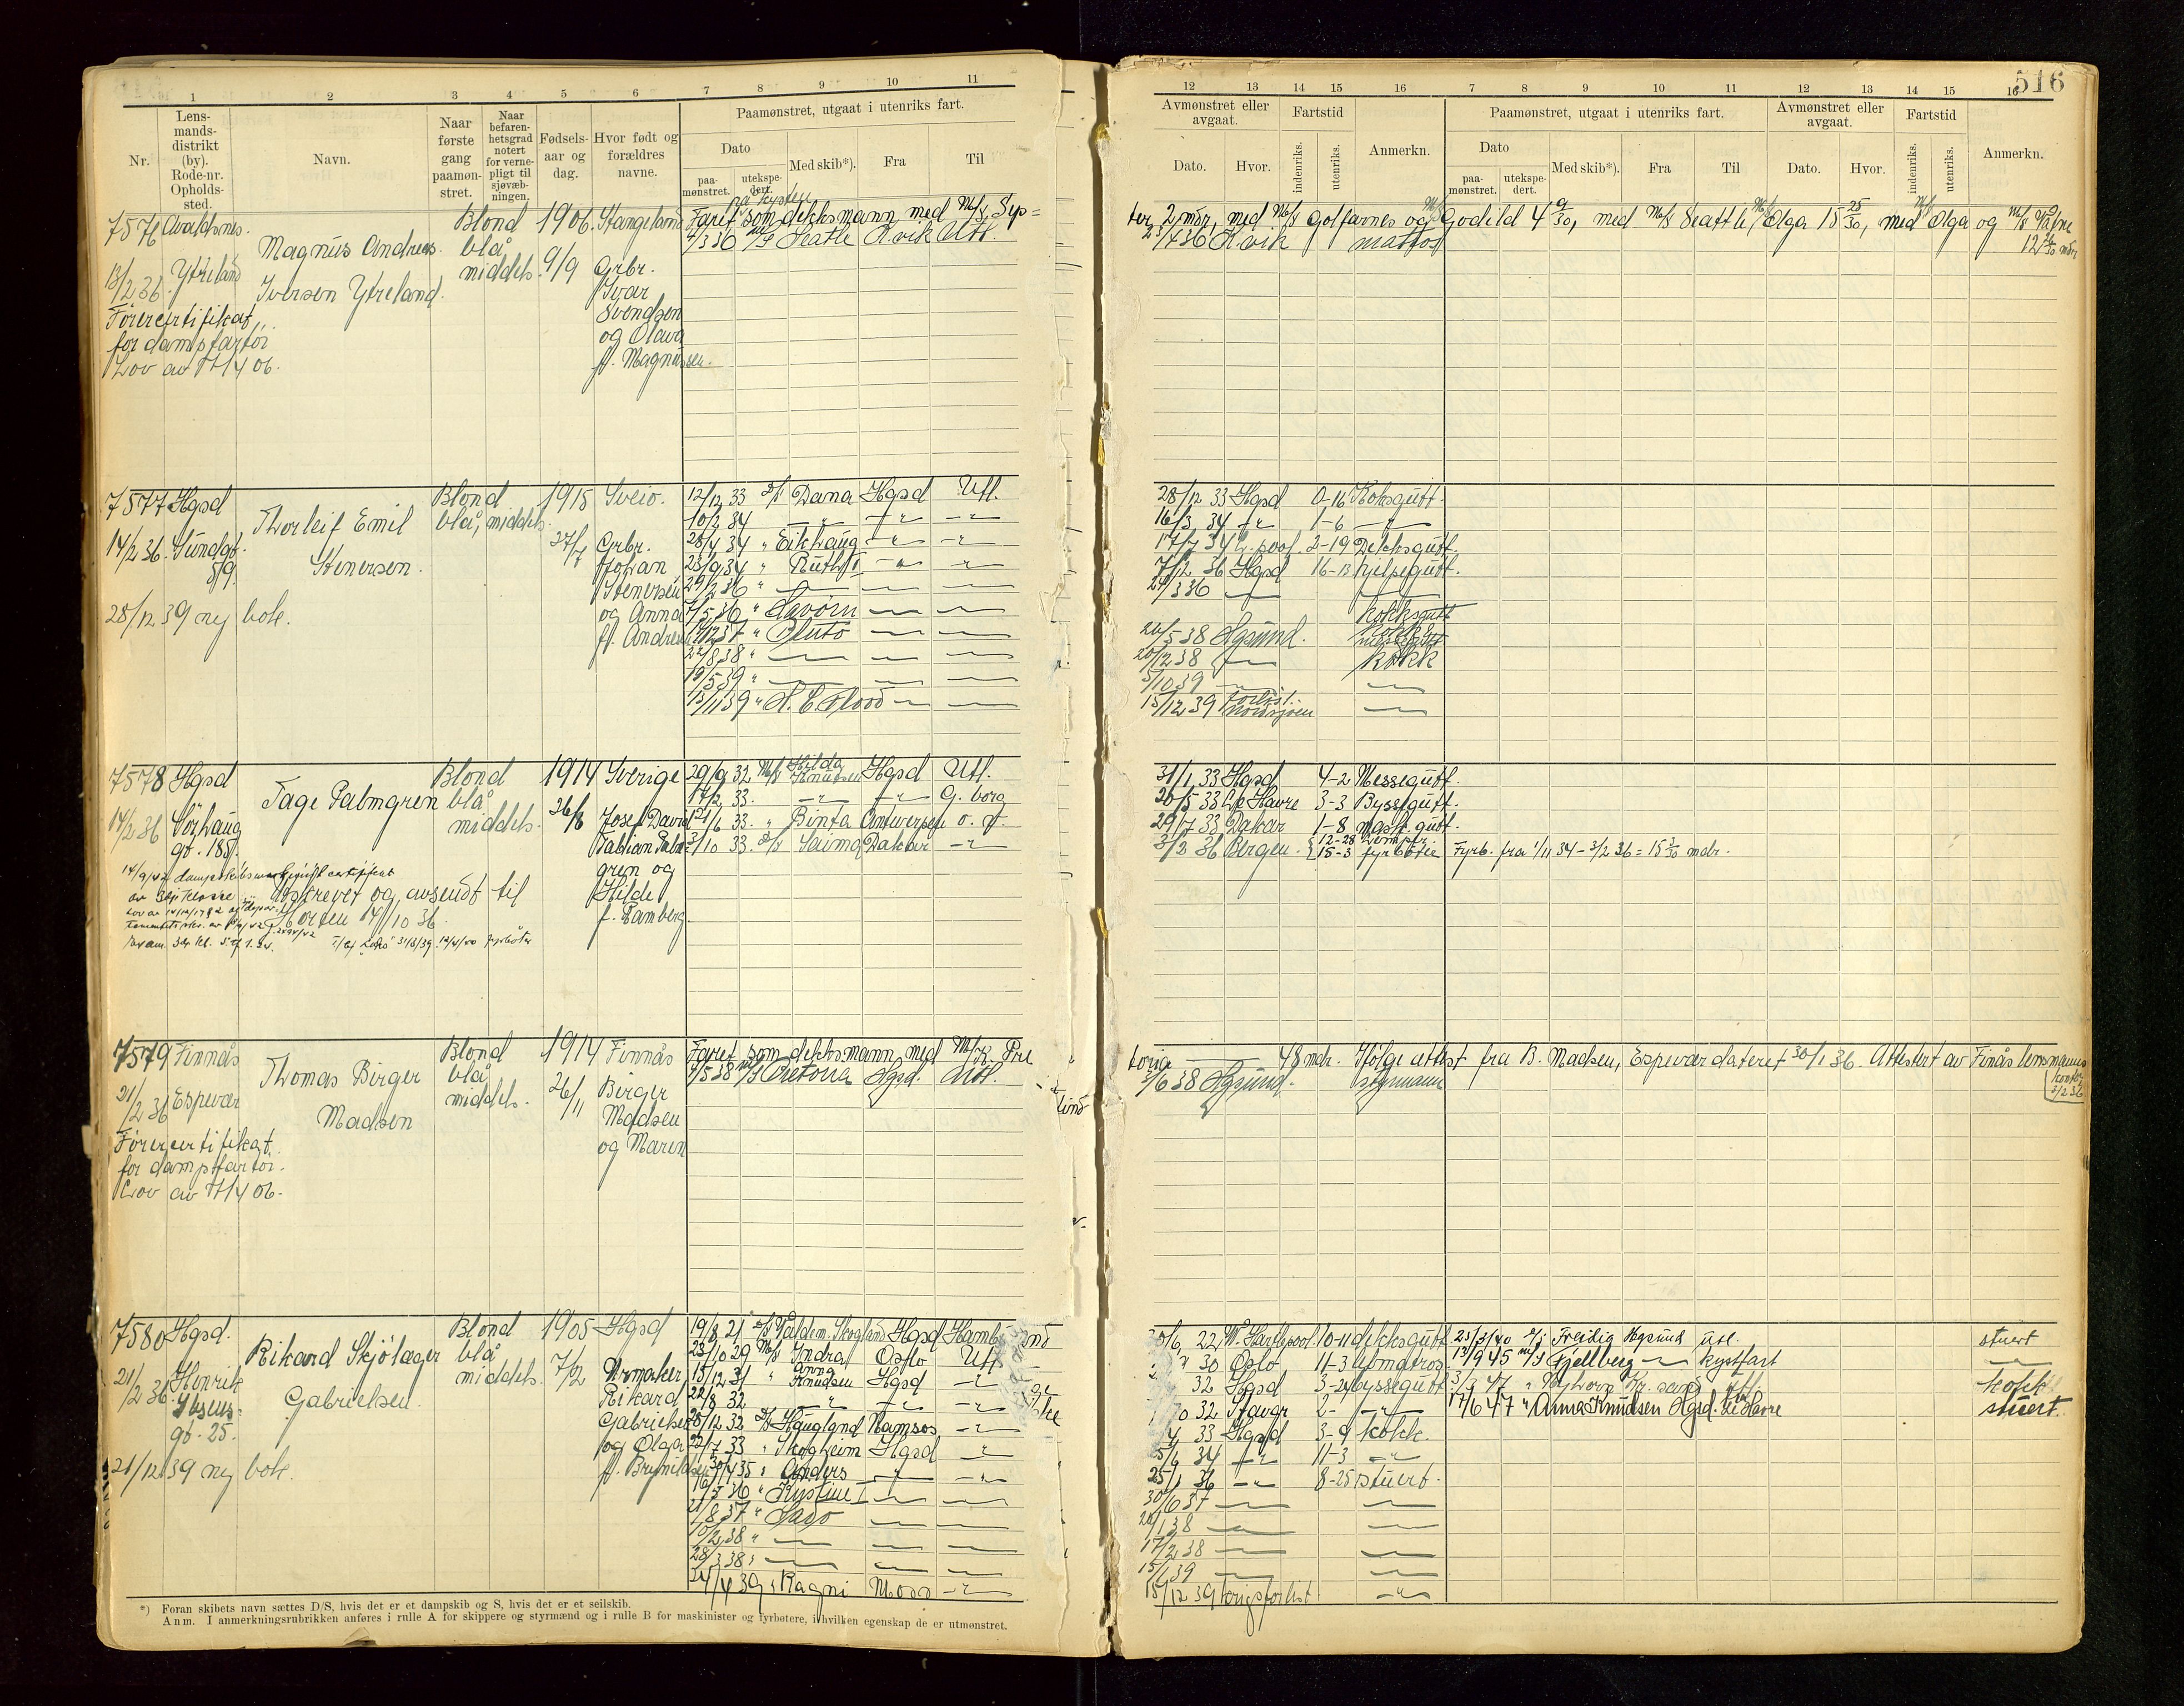 516
1 2 3 4 5 6 7 8 9 10 11
Nr.
Lensmands-distrikt (by). Rode-nr. Opholds-sted.
Navn.
Naar første gang paamøn-stret.
Naar befaren-hetsgrad notert for verne-pligt til sjøvæb-ningen.
Fødsels-aar og dag.
Hvor født og forældres navne.
Paamønstret, utgaat i utenriks fart.
Dato
paa-mønstret.
utekspe-dert.
Med skib*).
Fra
Til
12 13 14 15 16 7 8 9 10 11 12 13 14 15 16
Avmønstret eller avgaat.
Fartstid
Dato.
Hvor.
indenriks.
utenriks.
Anmerkn.
Paamønstret, utgaat i utenriks fart.
Dato
paa-mønstret.
utekspe-dert.
Med skib*).
Fra
Til
Avmønstret eller avgaat.
Fartstid
Dato.
Hvor.
indenriks.
utenriks.
Anmerkn.
7576 Avaldsnes.
13/2 36 Ytreland
Førercertifikat
for dampfartöi
Lov av 17/4 06.
Magnus Andreas
Iversen Ytreland.
Blond
blå
middels.
1906.
9/9
Stangeland
Grbr.
Ivar
Svendsen
og Olava
f. Magnussen.
på kysten
Faret som dekksmann med M/s
2/3 36 M/S Seatle K.vik Utl.
2 mdr, med M/s Golfarnes og M/s Godild 4 9/30, med M/s Seattle, M/s Olga 15 25/30, med M/s Olga og M/s
36 K.vik matros
7577 Hgsd
14/2 36. Sundgt.
28/12 39 ny bok.
Thorleif Emil
Stenersen.
Blond
blå, middels.
1915
27/7
Sveio.
Grbr.
Johan
Stenersen
og Anna
f. Andre
12/12 33 D/s Dana Hgsd Utl.
10/2 34
28/4 34 " Eikhaug
23/9 34 " Ruth I
29/2 36 "
7/5 36 " Havörn
37 " Pluto
22/8 38 "
19/5 39 "
13/11 39 " H. C. Flood
28/12 33 Hgsd 0-16 Kokksgutt.
16/3 34 1-6
17/7 34 L.pool. 2-19 Dekksgutt.
7/2 36 Hgsd 16-13 Hjelpegutt.
36
kokksgutt
5 38 Hgsund. kokk
messegutt
20/12 38 kokk
5/10 39
15/12 39 forlist. nordsjøen
7578 Hgsd
14/2 36 Sörhaug
gt. 187.
Tage Palmgren
Blond
blå
middels.
1914
26/8
Sverige
Josef David
Fabian Palm-
gren og
Hilde
f. Pamberg
14/9/42 dampskibsmaskinist certifikat
av 3dje klasse
avskrevet og avsendt til
Horten 17/10 36.
29/9 32 M/s Hilda Knudsen Hgsd Utl.
17/2 33. G. borg
21/6 33. " Binta Antwerpen o. f.
3/10 33. D/s Saima Dakar
31/1 33 Hgsd 4-2 Messegutt.
20/5 33 Le Havre 3-3 Byssegutt.
29/7 33 Dakar 1-8 mask. gutt.
3/2 36 Bergen. 12-28 Lemper
15-3 fyrböter Fyrb. fra 1/11 34 - 3/2 36 = 15 3/30 mdr.
7579 Finnås
21/2 36 Espevær
Førercertifikat.
for dampfartöi.
Lov av 17/4 06.
Thomas Birger
Madsen
Blond
blå
middels.
1914
26/11
Finnås
Birger
Madsen
og Maren
Faret som dekksmann med M/k. Pre
7/5 38 M/S Pretoria Hgsd. Utl.
toria 48 mdr. Ifölge attest fra B. Madsen, Espevær dateret 30/1 36. Attestert av Finås lensmanns kontor 5/2 36
2/6 38 Hgsund. styrmann
7580 Hgsd.
21/2 36 Henrik
Ibsens-
gt. 25.
21/12 39 ny bok.
Rikard Skjölager
Gabrielsen.
Blond
blå
middels.
1905
7/2
Hgsd
Urmaker
Rikard
Gabrielsen
og Olga
f. Brynildsen
19/8 21 D/s Valdem. Skogland Hgsd Hamb
23/10 29 M/s Indra Oslo Utl
15/12 31 " Anna Knudsen Hgsd
22/8 32
28/12 32 D/s Haugland Namsos
22/7 33 " Skogheim Hgsd
30/4 35 " Anders
16/5 36 " Kystine I
21/8 37 " Sado
10/2 38 "
28/3 38 "
24/4 39 " Ragni Moss
22 W. Hartlepool. 10-11 dekksgutt 23/3/40 D/s Freidig Hgsund utl. stuert
30 Oslo 11-3 lettmatros 13/9 45 M/S Fjellberg kystfart
32 Hgsd 3-24 byssegutt 3/3 47 " Nyhorn Kr. sand Utl. kokk
32 Stavgr 2- 17/6 47 " Anna Knudsen Hgsd. Le Havre stuert.
33 Hgsd 3-9 kokk.
5/6 34 11-3
25/1 36 8-25 stuert.
30/6 37
20/1 38
17/2 38
15/1 39
15/12 39 Krigsforlist
*) Foran skibets navn sættes D/S, hvis det er et dampskib og S, hvis det er et seilskib.
Anm. I anmerkningsrubrikken anføres i rulle A for skippere og styrmænd og i rulle B for maskinister og fyrbøtere, i hvilken egenskap de er utmønstret.